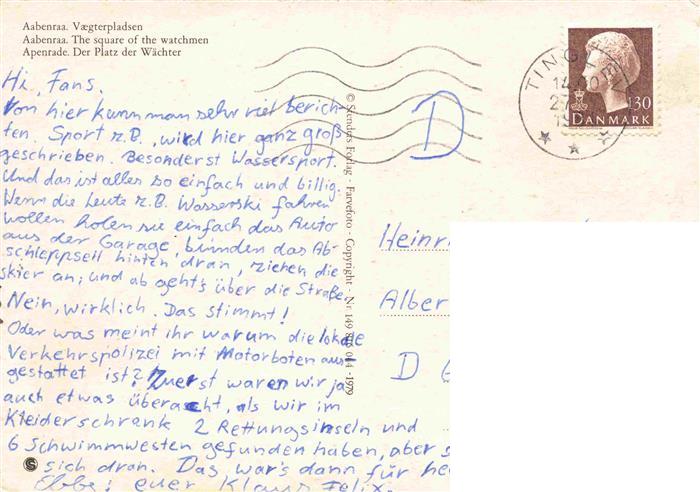 Aabenraa. Vægterpladsen
Aabenraa. The square of the watchmen
Apenrade. Der Platz der Wächter
Hi, Fans.
Von hier kann man sehr viel berich-
ten. Sport z.B. wird hier ganz groß
geschrieben. Besonderst Wassersport.
Und das ist alles so einfach und billig.
Wenn die Leute z.B. Wasserski fahren
wollen holen sie einfach das Auto
aus der Garage, binnden das Ab-
schleppseil hinten dran, ziehen die
skier an; und ab geht's über die Straße.
Nein, wirklich. Das stimmt!
Oder was meint ihr warum die lokale
Verkehrspolizei mit Motorboten aus
gestattet ist? Zuerst waren wir ja
auch etwas überascht, als wir im
Kleiderschrank 2 Rettungsinseln und
6 Schwimmwesten gefunden haben, aber
sich dran. Das war's dann für he
Ebbe! euer Klaus Felix.
© Stenders Forlag - Farvefoto - Copyright - Nr. 149 014 - 1979
D
TING
14
27
19
130
DANMARK
Heinri
Alber
D
S